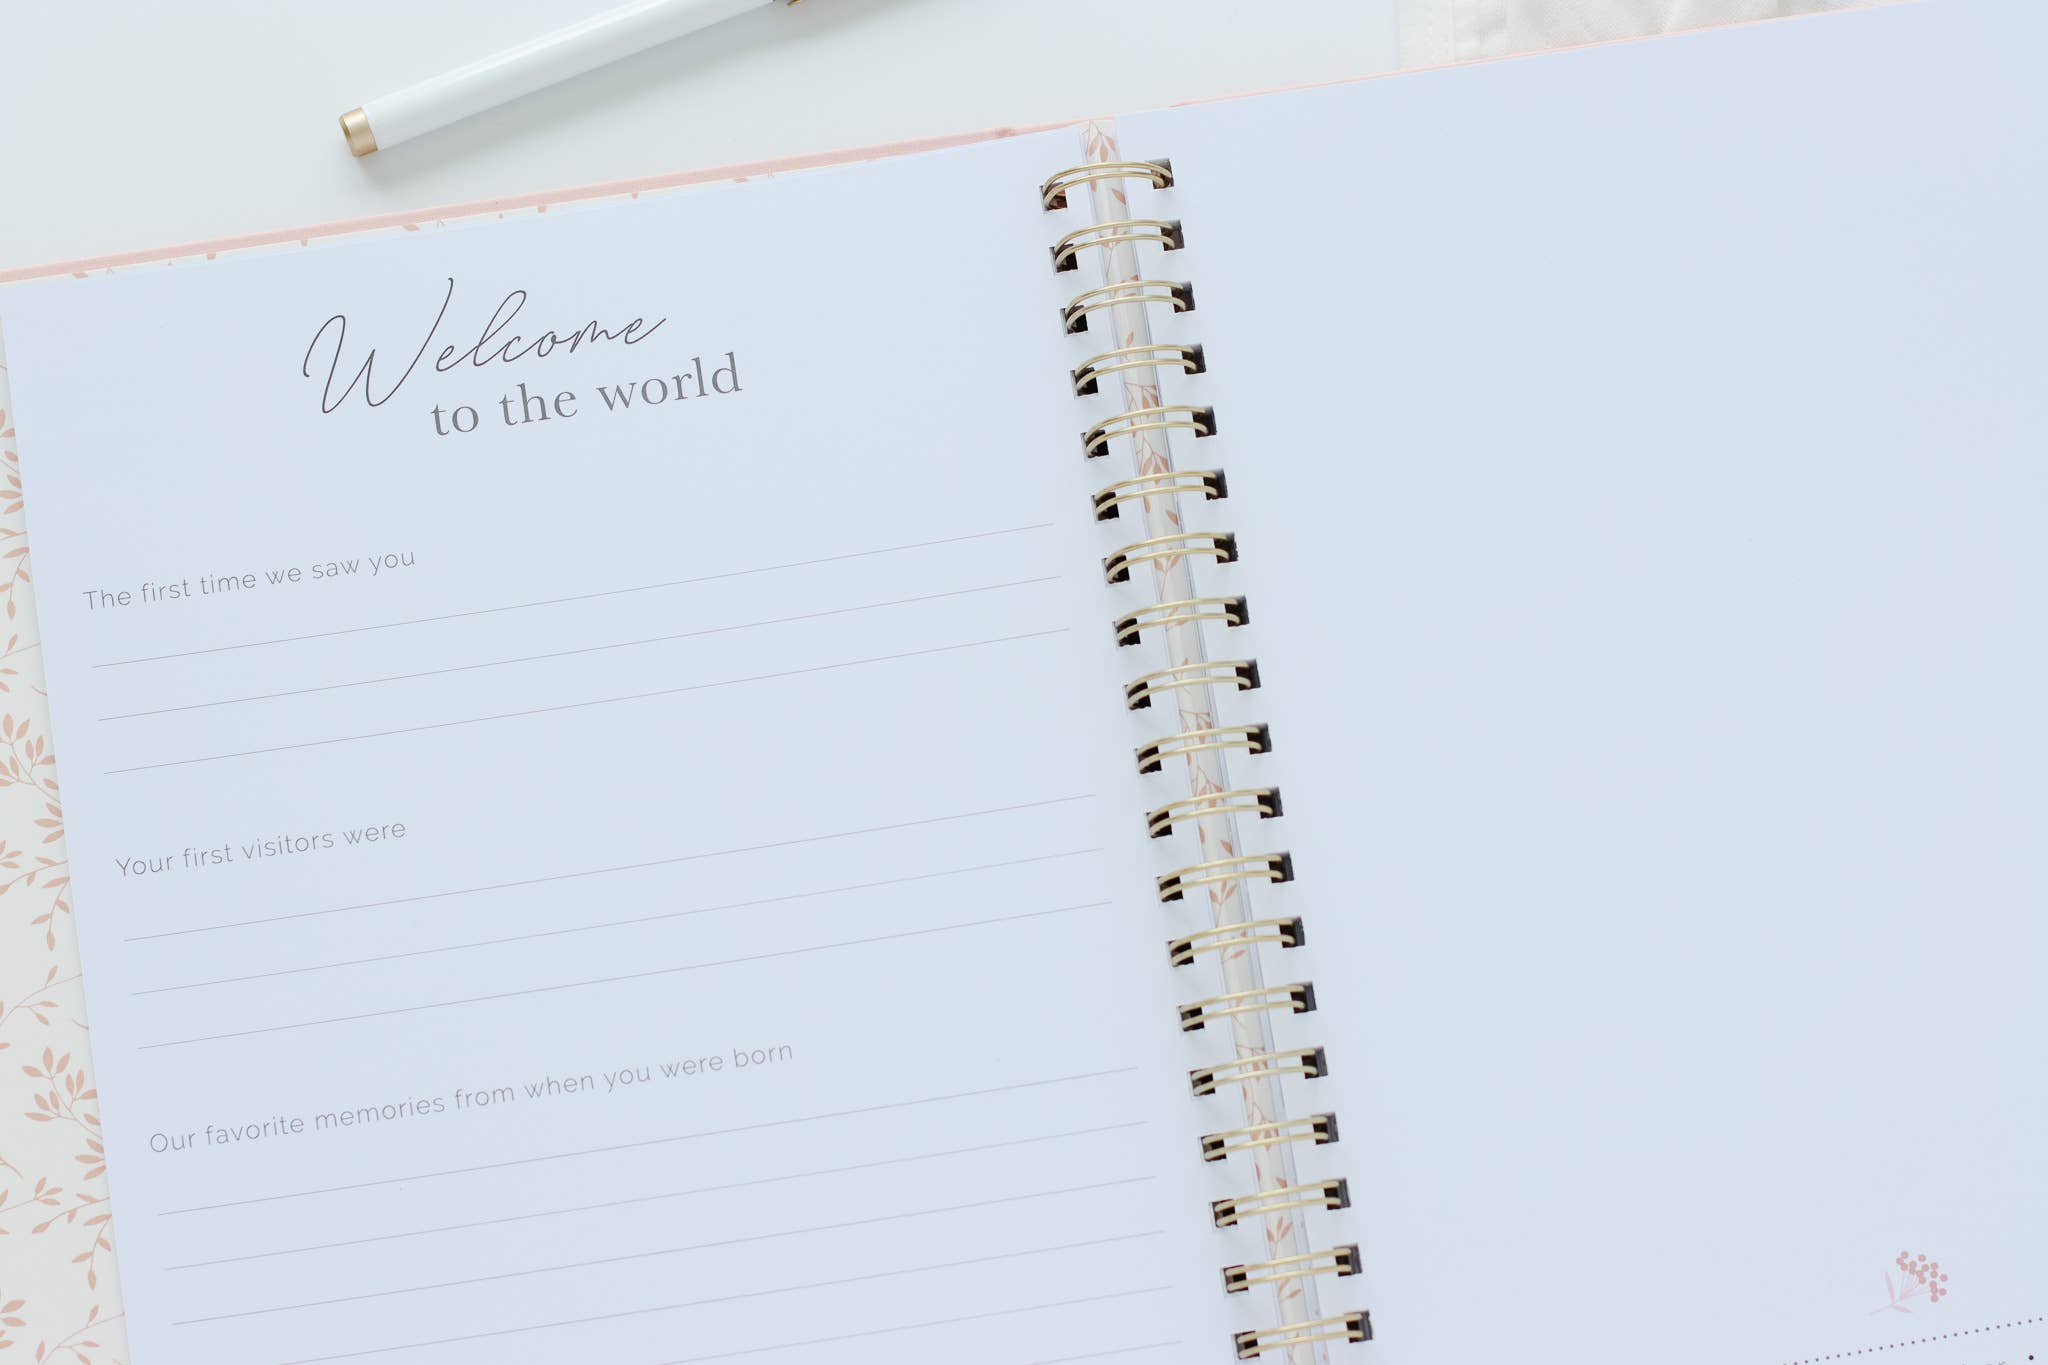 Welcome
to the world
The first time we saw you
Your first visitors were
Our favorite memories from when you were born